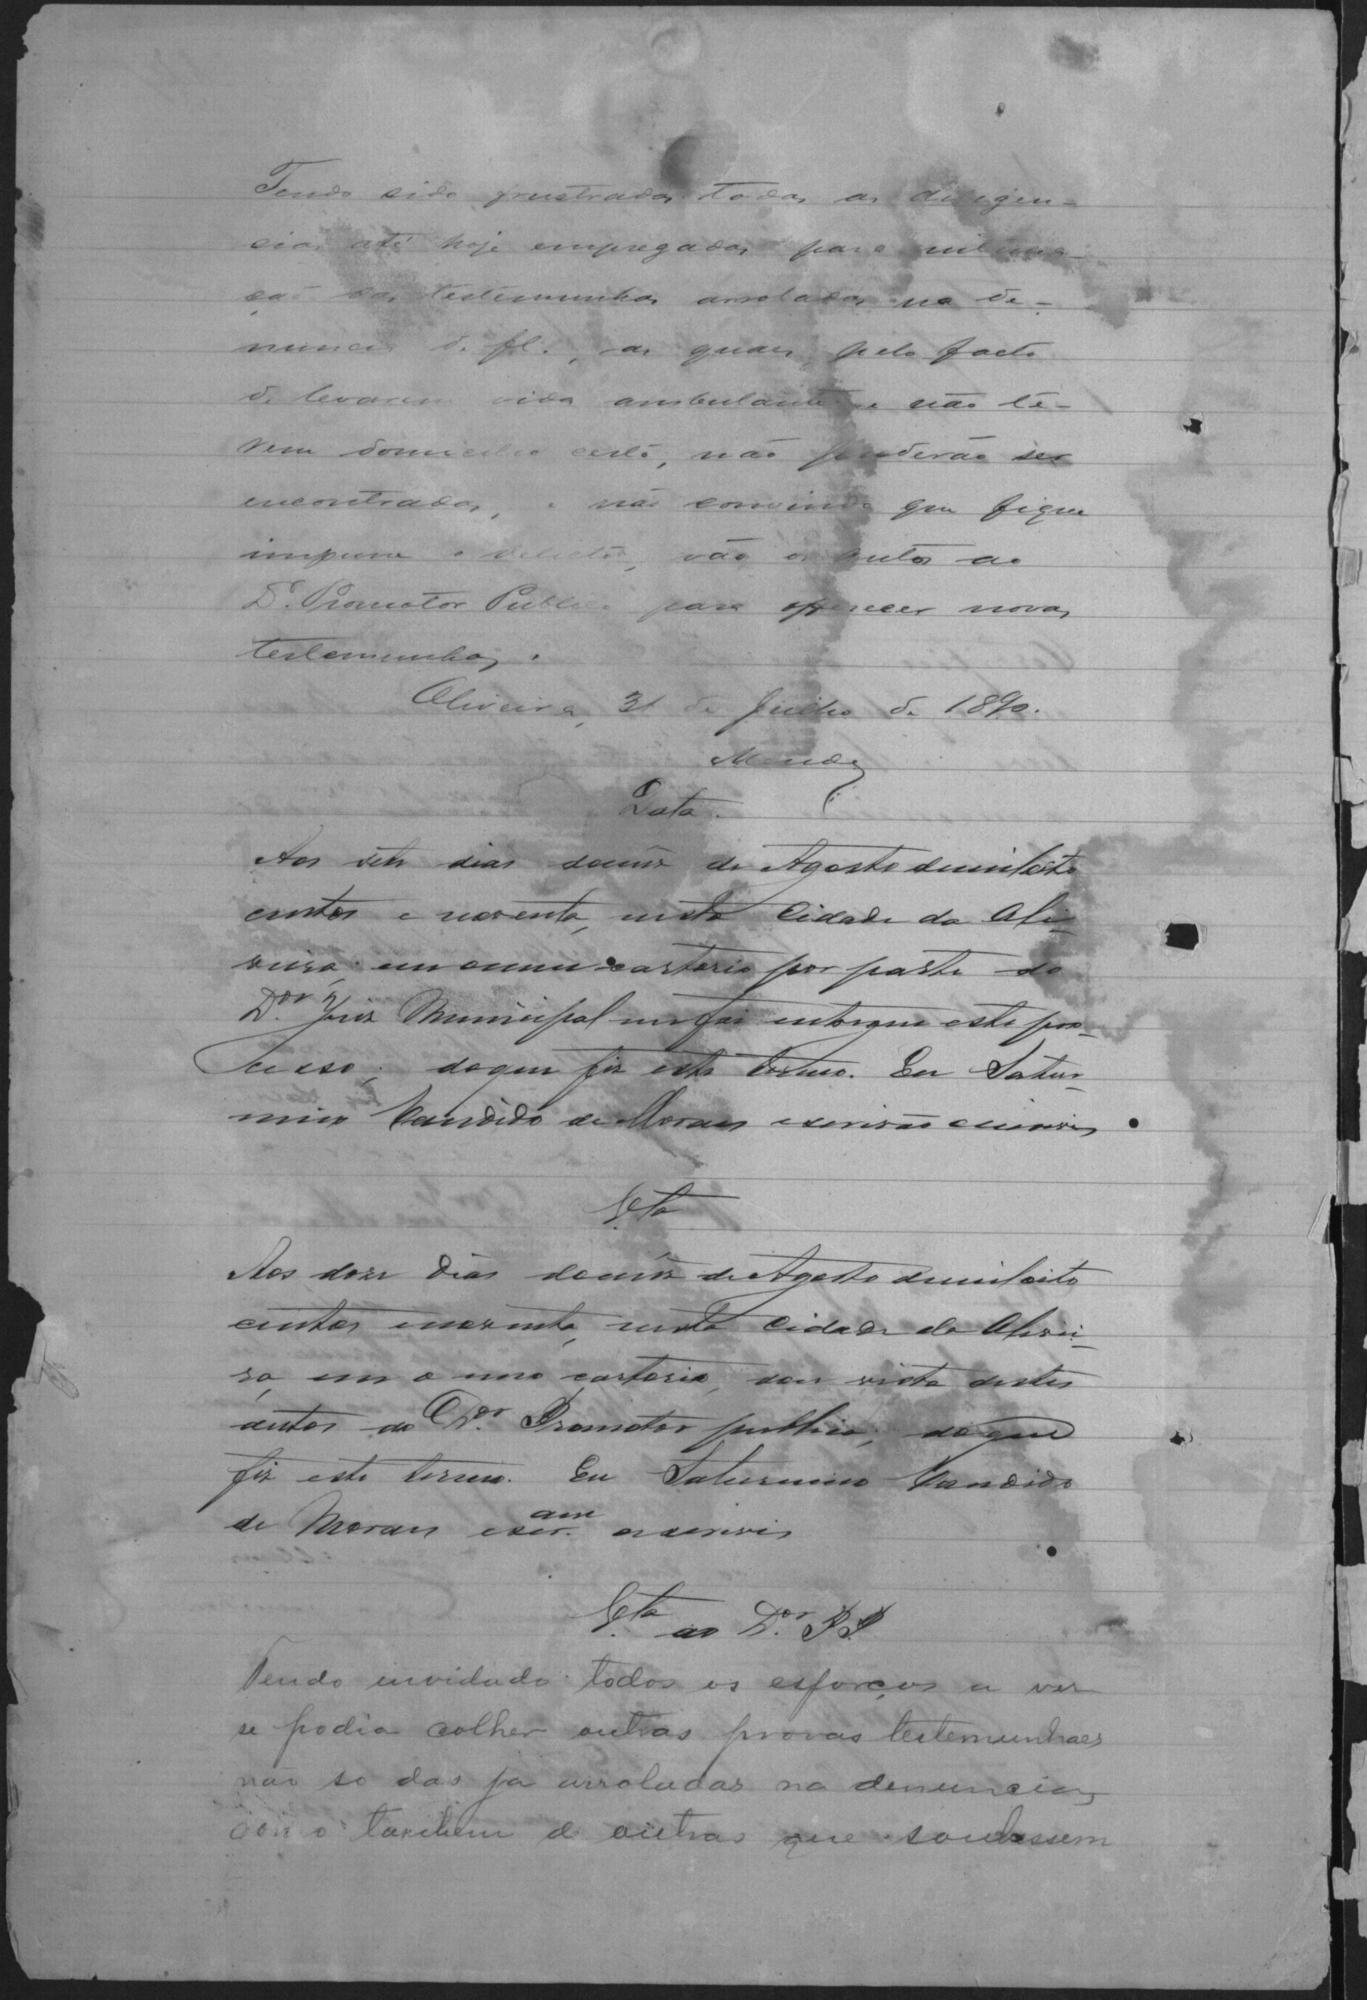 Tendo sido frustradas todas as diligen-
cias até hoje empregadas para intima-
ção das testemunhas arroladas na de-
nuncia de fl., as quaes, pelo facto
de levarem vida ambulante e não te-
rem domicilio certo, não poderão ser
encontradas, e não convindo que fique
impune o delicto, vão os autos ao
Dr. Promotor Publico para offerecer novas
testemunhas.
Oliveira, 31 de Julho de 1890.
Mendes
Data.
Aos sete dias do mez de Agosto de mil oito
centos e noventa, nesta Cidade da Oli-
veira em o meu cartorio por parte do
Dor. Juiz Municipal me foi entregue este pro-
cesso; do que fiz este termo. Eu Satur-
nino Candido de Moraes escrivão escrevi
Vta
Aos doze dias do mez de Agosto de mil oito
centos e noventa, nesta Cidade da Olivei-
ra, em o meu cartorio, dou vista destes
autos ao Dor. Promotor publico; do que
fiz este termo. Eu Saturnino Candido
de Moraes escr.am o escrevi
Vta ao Dor. P. P.
Tendo envidado todos os esforços a ver
se podia colher outras provas testemunhaes
não so das ja arroladas na denuncia,
como tambem de outras que soubessem